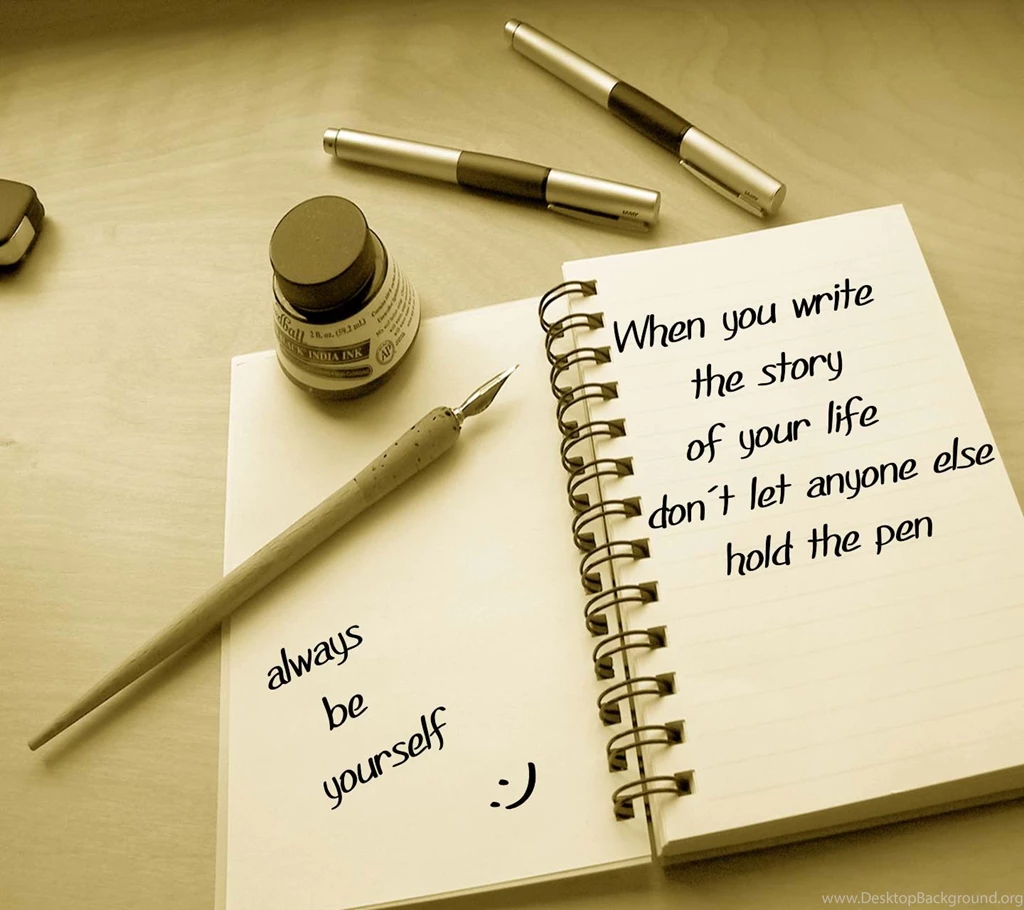 always
be
yourself
:)
When you write
the story
of your life
don´t let anyone else
hold the pen
1 fl. oz. (59.2 mL)
INDIA INK
AP
www.DesktopBackground.org